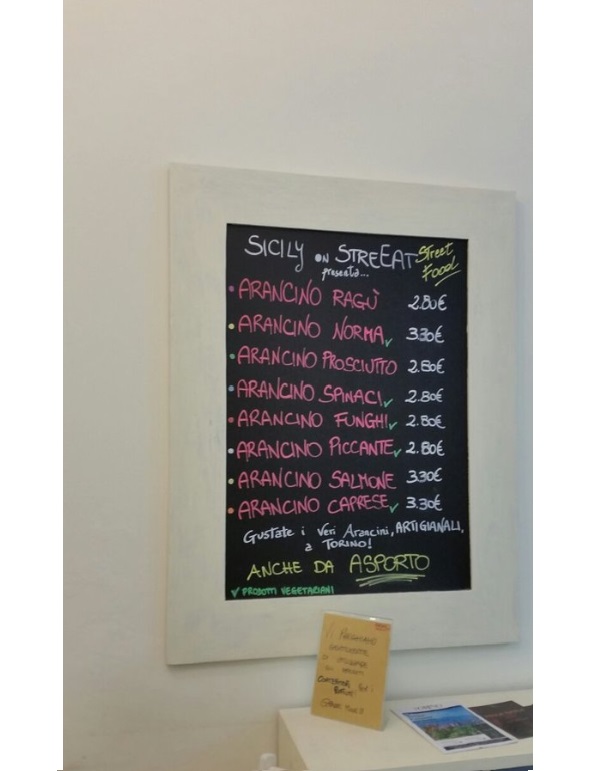 SICILY ON STREEAT Street Food
presenta...
• ARANCINO RAGÙ 2.80€
• ARANCINO NORMA ✓ 3.30€
• ARANCINO PROSCIUTTO 2.80€
• ARANCINO SPINACI ✓ 2.80€
• ARANCINO FUNGHI ✓ 2.80€
• ARANCINO PICCANTE ✓ 2.80€
• ARANCINO SALMONE 3.30€
• ARANCINO CAPRESE ✓ 3.30€
Gustate i Veri Arancini, ARTIGIANALI,
a TORINO!
ANCHE DA ASPORTO
✓ PRODOTTI VEGETARIANI
VI PREGHIAMO